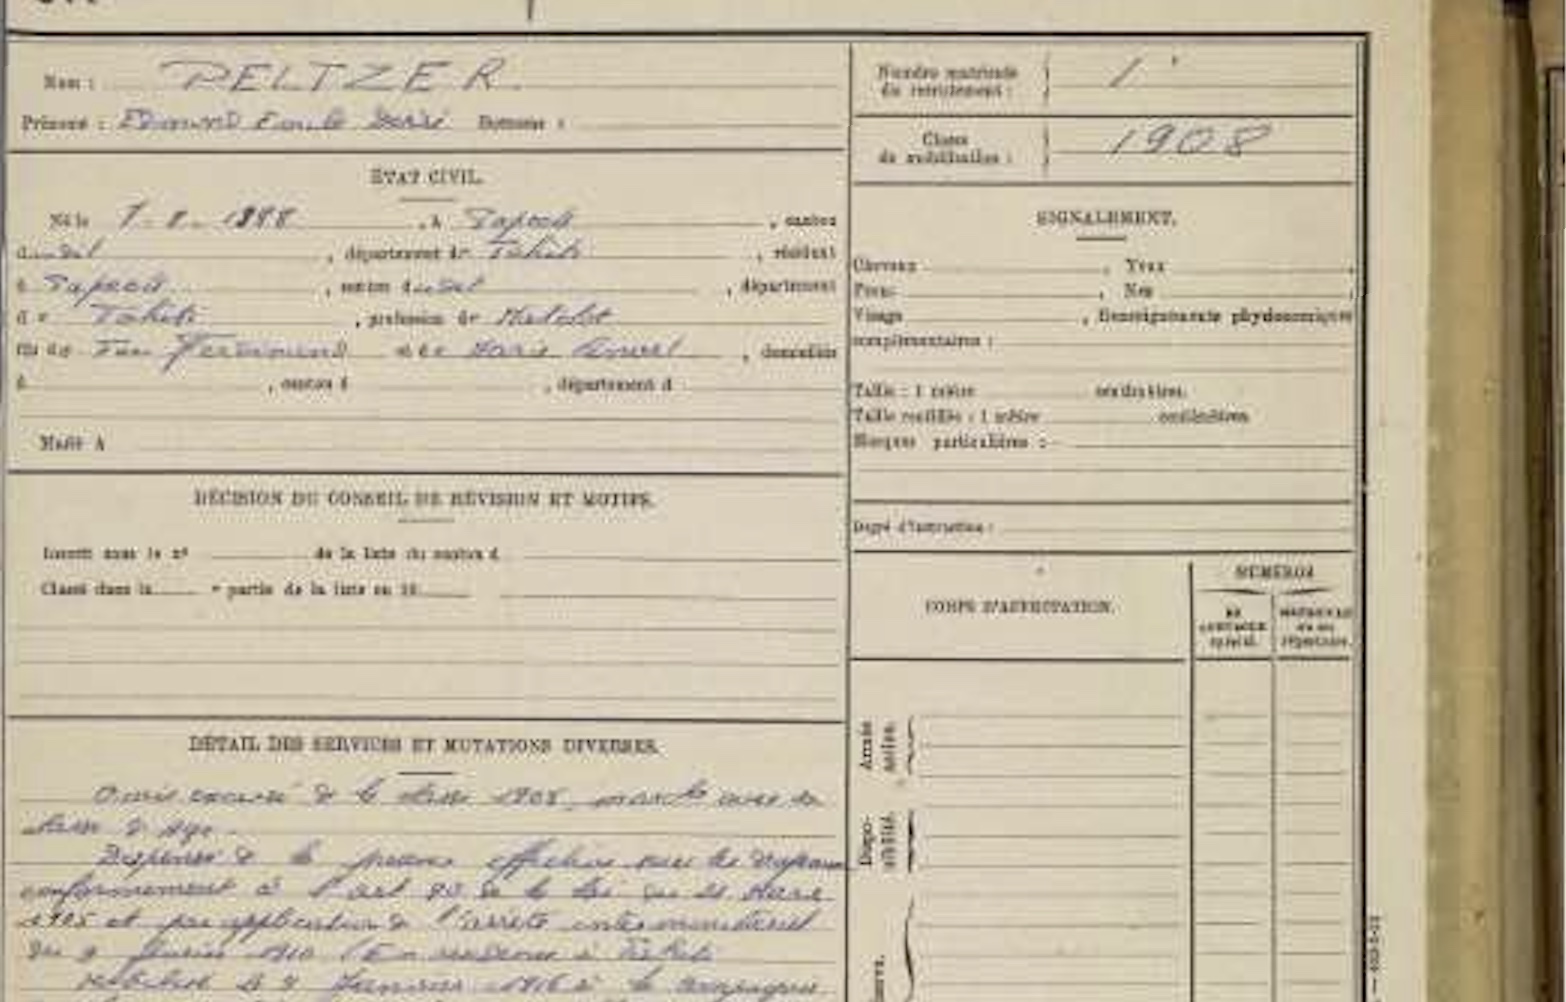 Nom : PELTZER
Prénoms : Edmond Emile Surnoms :
ÉTAT CIVIL.
Né le 1888, à Papeete, canton
dudit, département de Tahiti, résidant
à Papeete, canton dudit, département
de Tahiti, profession de Matelot
fils de Feu Ferdinand et de Marie, domiciliés
à, canton d, département d
Marié à
DÉCISION DU CONSEIL DE RÉVISION ET MOTIFS.
Inscrit sous le n° de la liste du canton d
Classé dans la e partie de la liste en 19
DÉTAIL DES SERVICES ET MUTATIONS DIVERSES.
Omis excusé de la classe 1908, marche avec sa
classe d'âge.
Dispensé de la présence effective sous les drapeaux
conformément à l'art 90 de la loi du 21 Mars
1905 et par application de l'arrêté interministériel
du 9 février 1910 (En résidence à Tahiti
Mobilisé le Janvier 1916 à la compagnie
Numéro matricule
du recrutement : 1
Classe
de mobilisation : 1908
SIGNALEMENT.
Cheveux, Yeux,
Front, Nez,
Visage, Renseignements physionomiques
complémentaires :
Taille : 1 mètre centimètres.
Taille rectifiée : 1 mètre centimètres
Marques particulières :
Degré d'instruction :
CORPS D'AFFECTATION.
NUMÉROS
AU
CONTROLE
spécial.
MATRICULE
ou au
répertoire.
Armée
active.
Dispo-
nibilité.